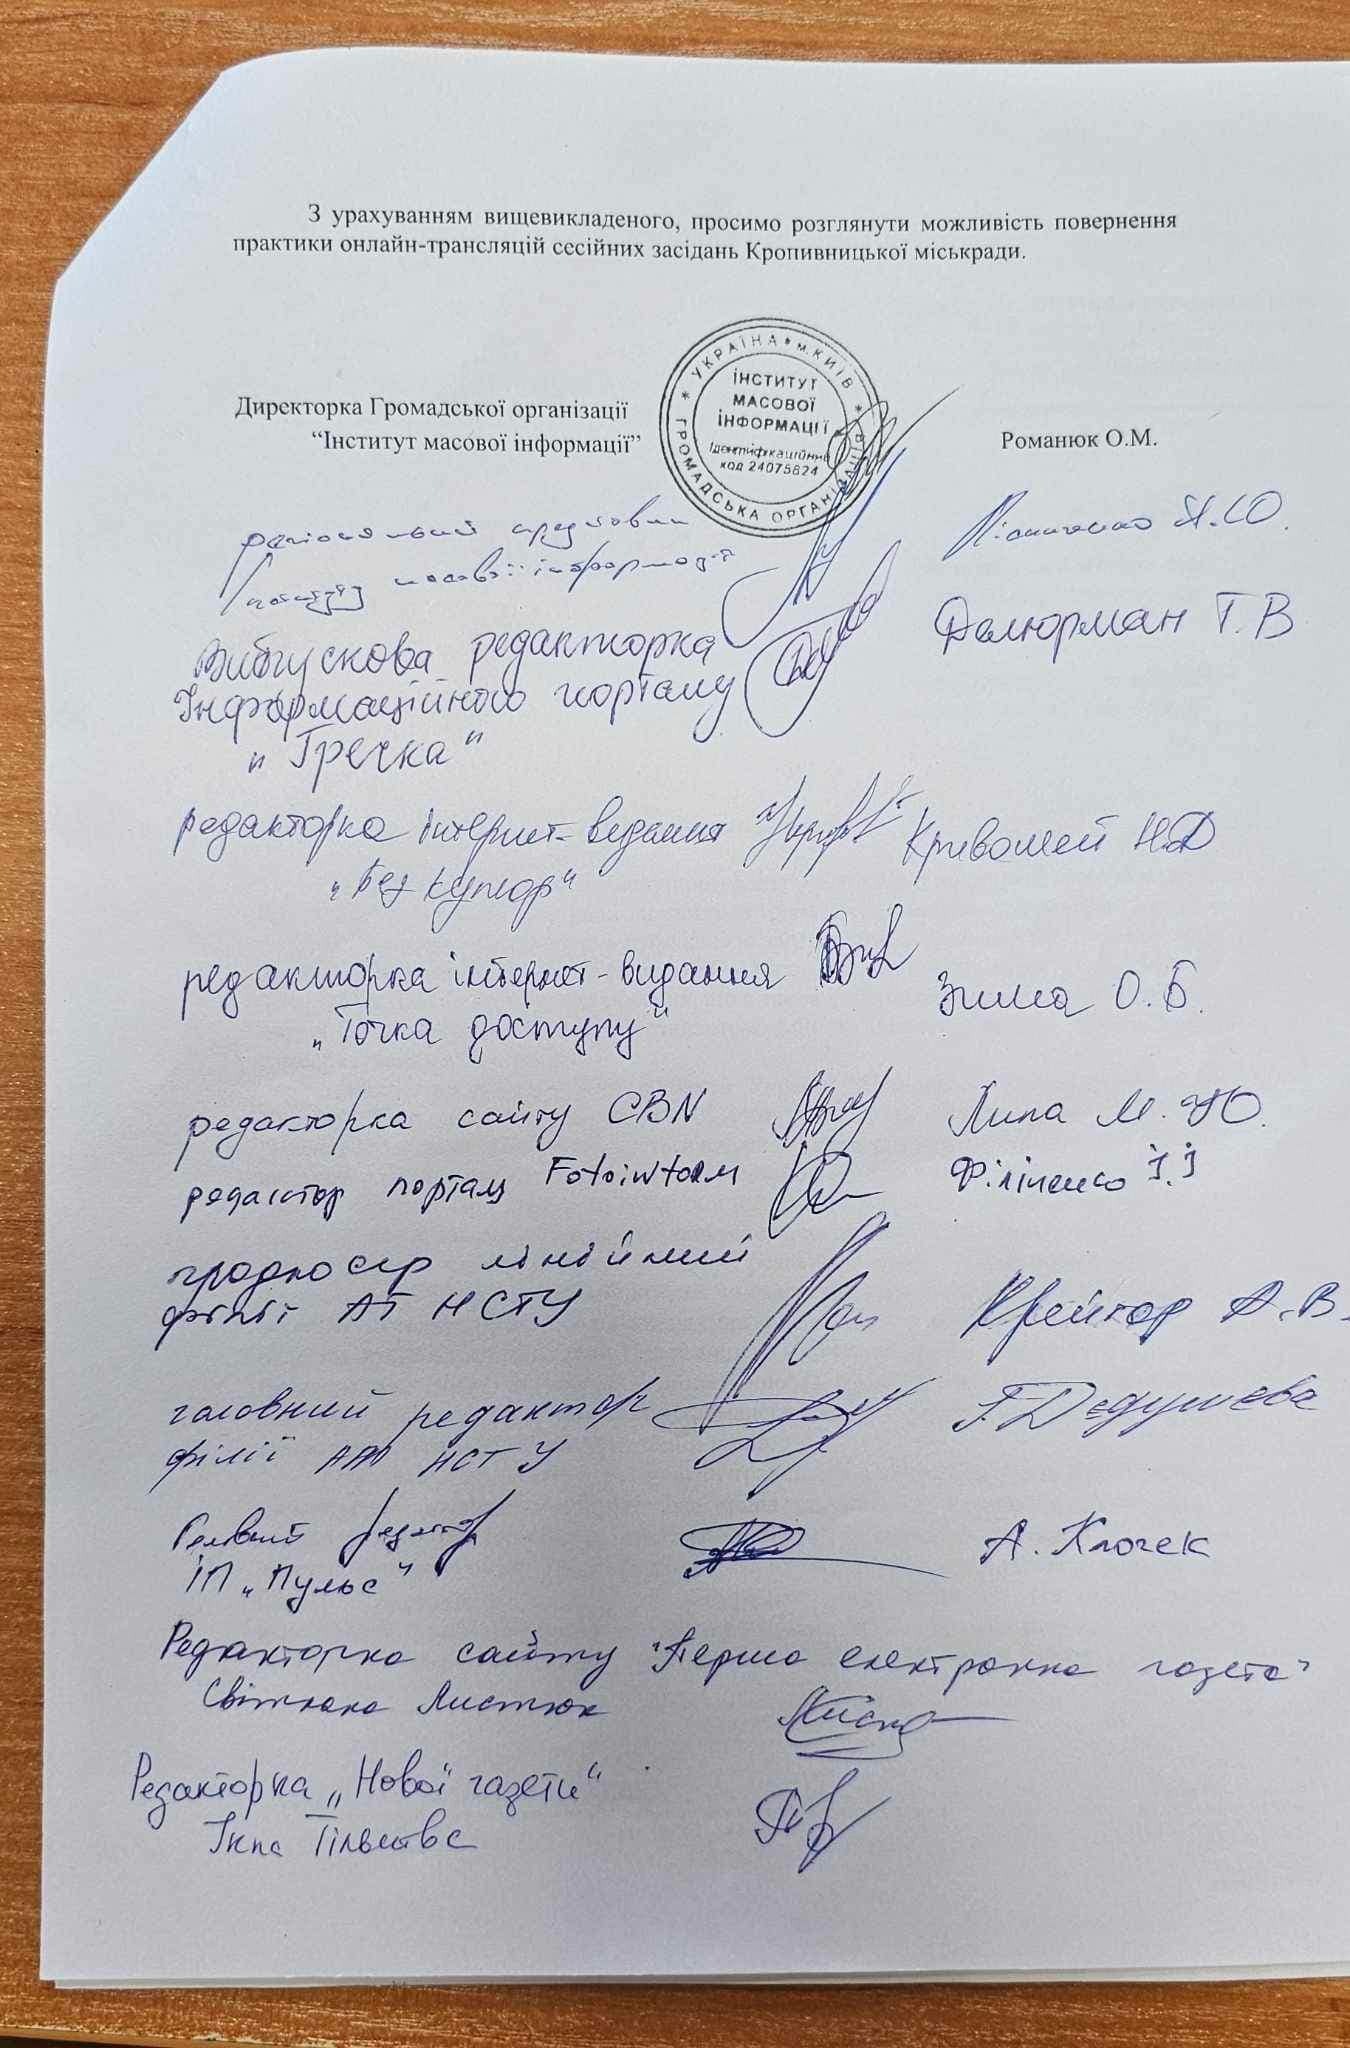 З урахуванням вищевикладеного, просимо розглянути можливість повернення
практики онлайн-трансляцій сесійних засідань Кропивницької міськради.
УКРАЇНА * м. КИЇВ * ГРОМАДСЬКА ОРГАНІЗАЦІЯ *
ІНСТИТУТ
МАСОВОЇ
ІНФОРМАЦІЇ
Ідентифікаційний
код 24075824
Директорка Громадської організації
“Інститут масової інформації” Романюк О.М.
регіональний представник
Інституту масової інформації Я.Ю.
Випускова редакторка Далюрман Т.В
Інформаційного порталу
"Гречка"
редакторка інтернет-видання Кривошей Н.Д
"Без купюр"
редакторка інтернет-видання Зима О.Б.
„Точка доступу"
редакторка сайту CBN Липа М.Ю.
редактор порталу Fotoinform Філіпенко І.І
продюсер лінійний Крейтор А.В.
філії АТ НСТУ
головний редактор Г. Дєдушева
філії АТ НСТУ
Головний редактор А. Клочек
ІП „Пульс"
Редакторка сайту "Перша електронна газета"
Світлана Листюк
Редакторка „Нової газети"
Інна Тільнова